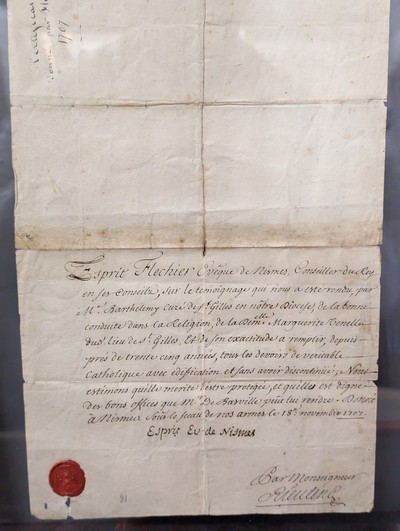 1707
Esprit Flechier Evêque de Nismes, Conseiller du Roy
en ses Conseilz, sur le temoignage qui nous a esté rendu, par
Mr. Barthelemy Curé de St. Gilles en nôtre Diocese, de la bonne
conduite dans la Religion, de la Demelle Marguerite
dud. lieu de St. Gilles, Et de son exactitude a remplir, depuis
prés de trente cinq années, tous les devoirs de veritable
Catholique avec edification et sans avoir discontinué; Nous
estimons quelle merite d'estre protegée, et quelle est digne
des bons offices que Mr. De Basville pour luy rendre. Donné
à Nismes sous le sceau de nos armes le 18e. novembre 1707.
Esprit Ev de Nismes
Par Monseigneur